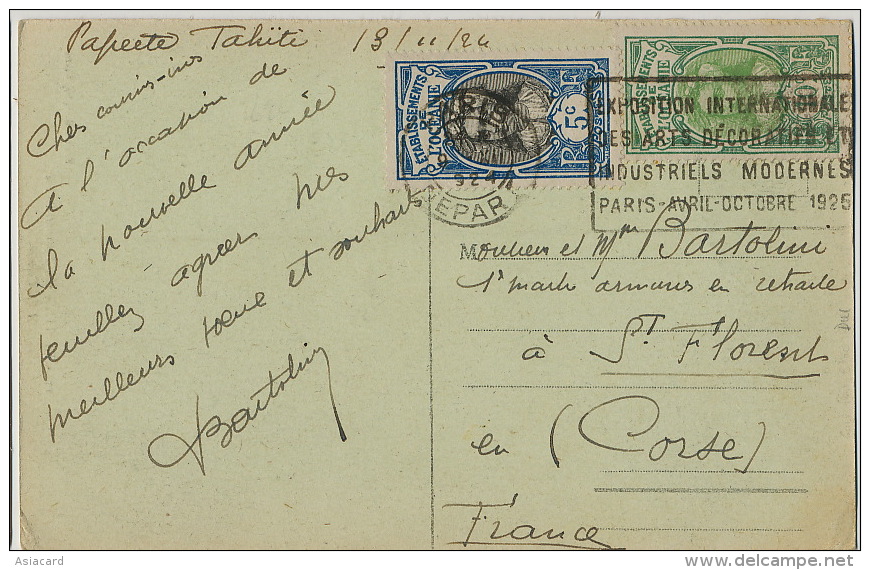 Papeete Tahiti 13/11/24
Chers cousins
A l'occasion de
la nouvelle année
veuillez agréer mes
meilleurs voeux et souhaits
Bartolini
ETABLISSEMENTS
DE
L'OCÉANIE
5c
POSTES
ETABLISSEMENTS
DE
L'OCÉANIE
POSTES
PARIS
DEPART
EXPOSITION INTERNATIONALE
DES ARTS DÉCORATIFS ET
INDUSTRIELS MODERNES
PARIS-AVRIL-OCTOBRE 1925
Monsieur et Mme Bartolini
armurier en retraite
à St Florent
en (Corse)
France
Asiacard
delcampe.net